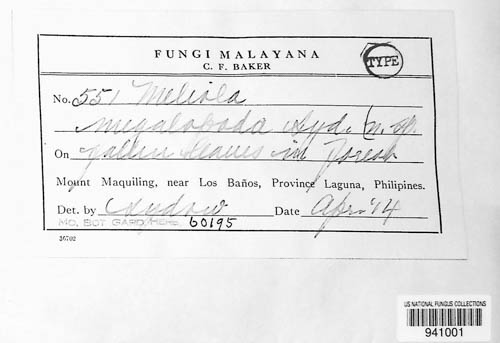 FUNGI MALAYANA
C. F. BAKER
TYPE
No. 551 Meliola
megalopoda Syd. (n. sp.
On fallen leaves in forest
Mount Maquiling, near Los Baños, Province Laguna, Philipines.
Det. by Sydow Date Apr. '14
MO. BOT. GARD. HERB. 60195
36702
US NATIONAL FUNGUS COLLECTIONS
941001